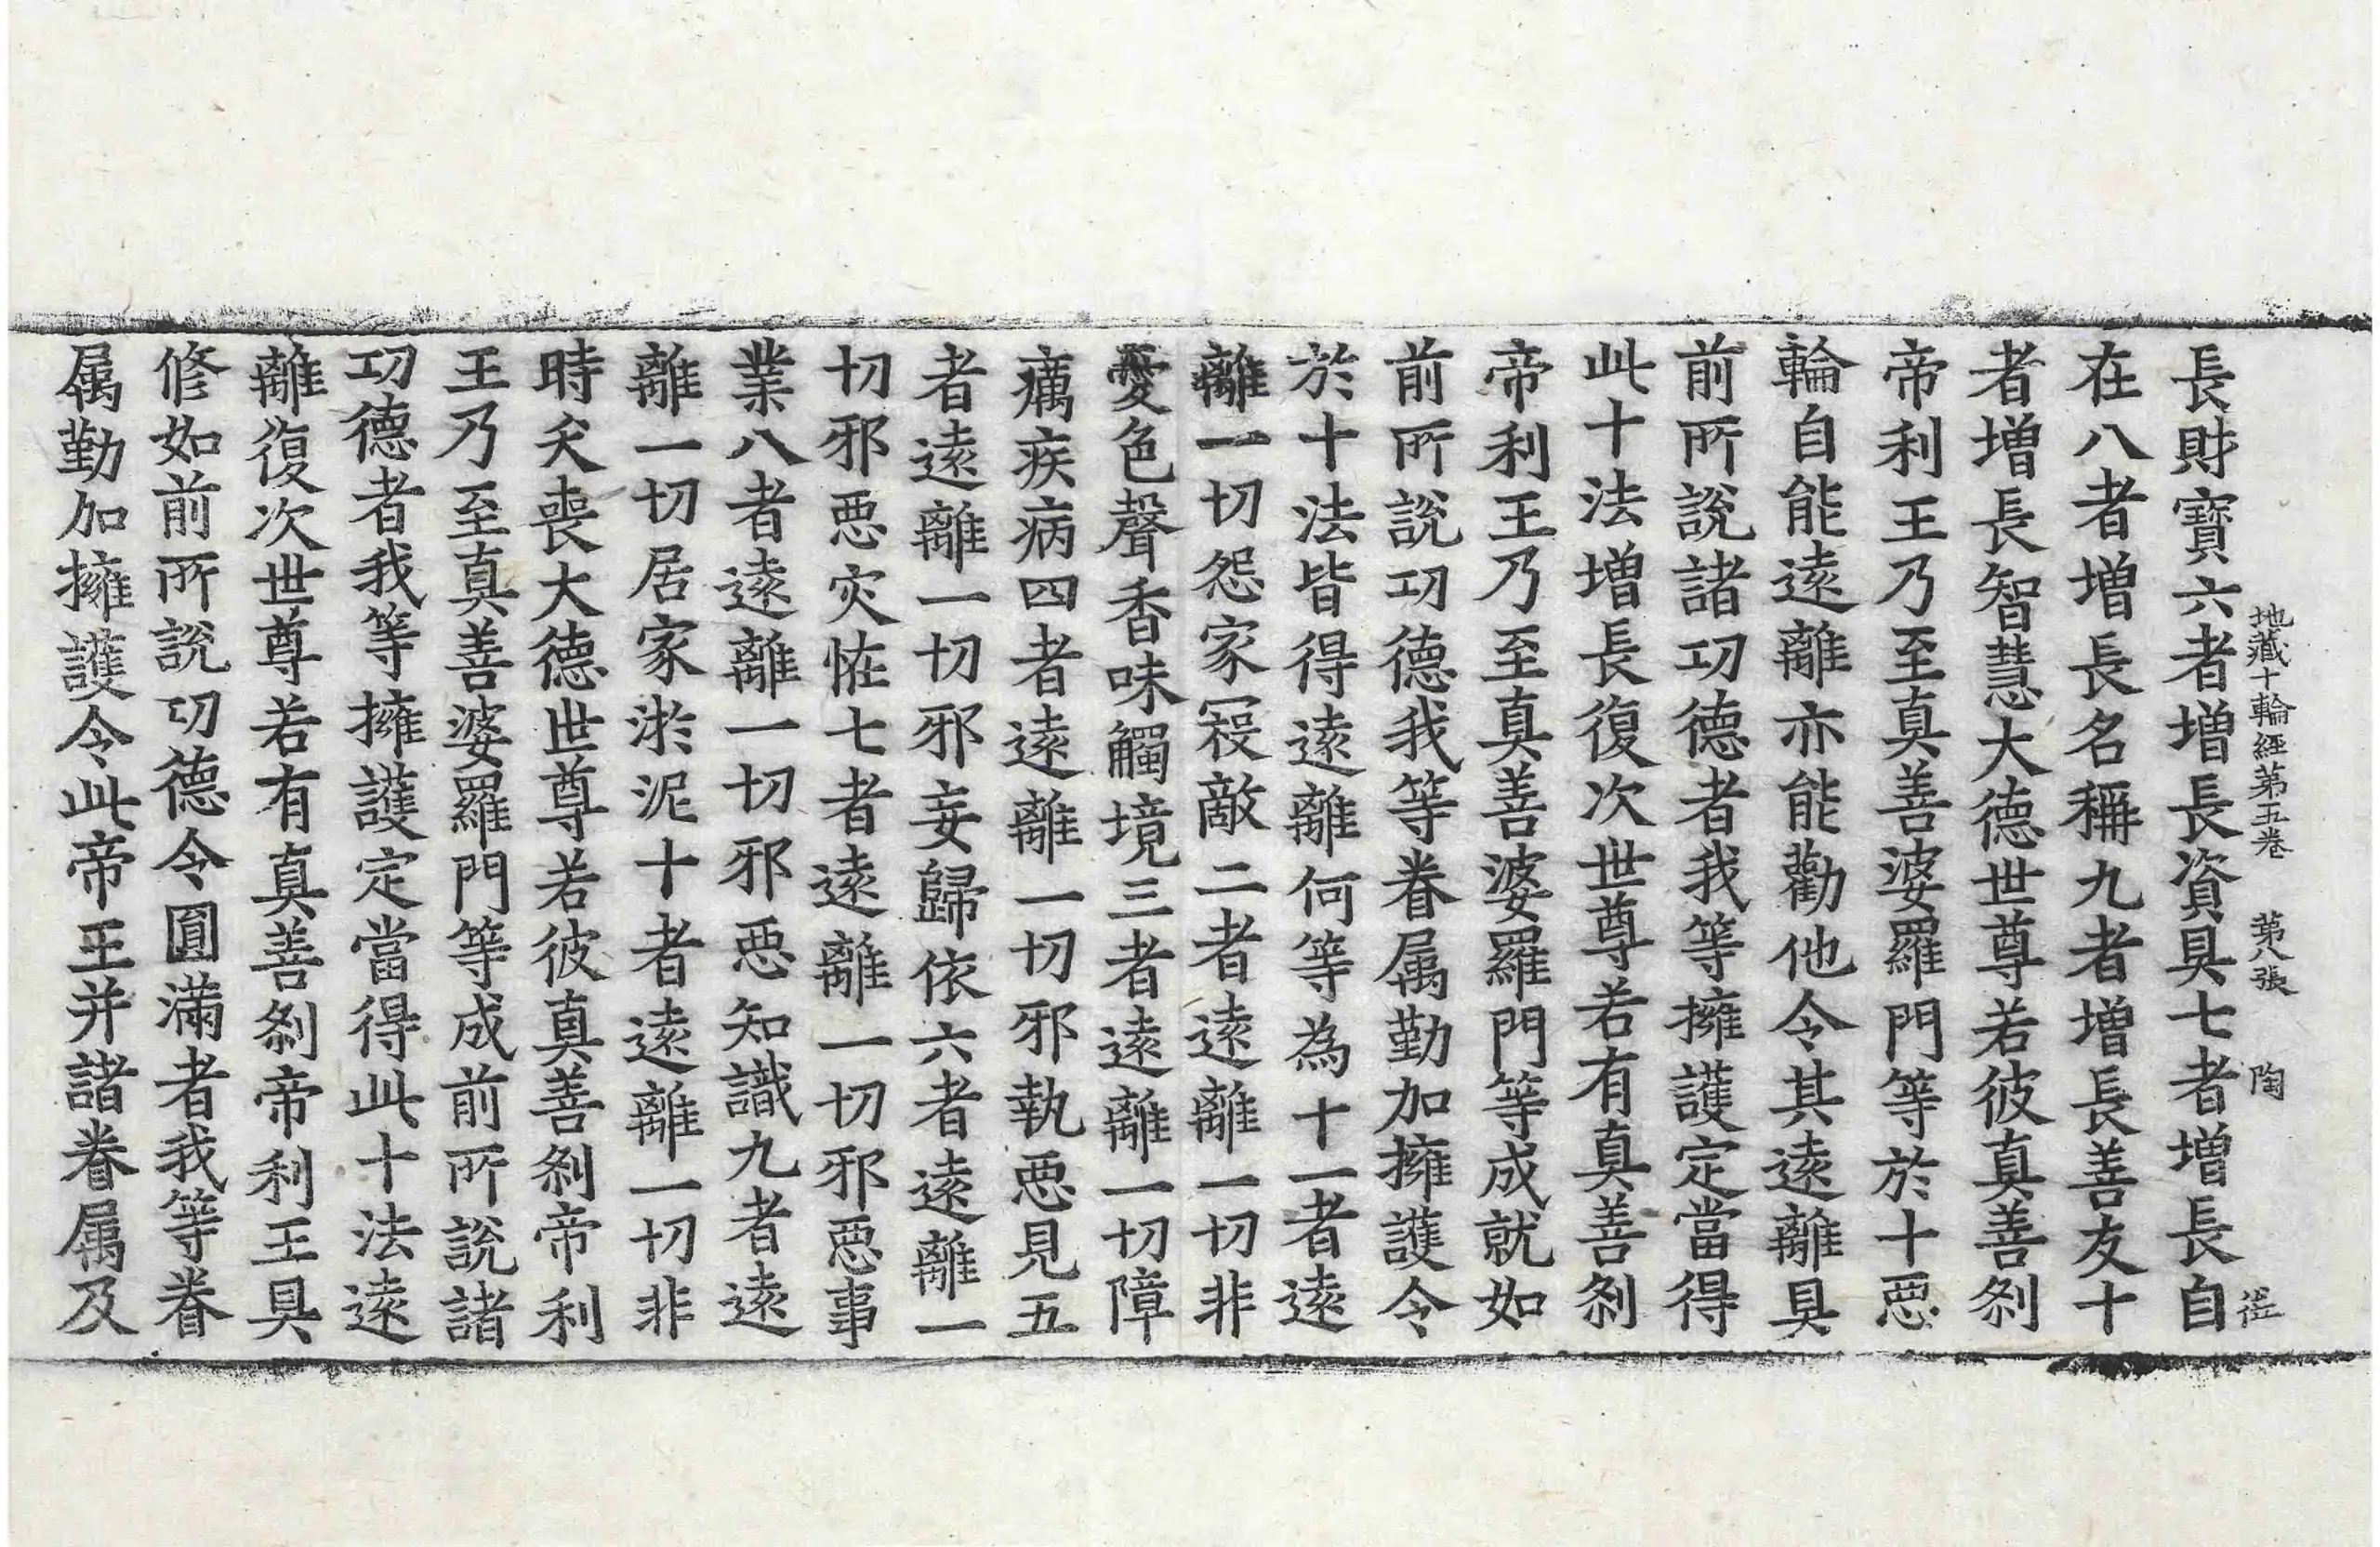 地藏十輪經第五卷 第八張 陶
長財寶六者增長資具七者增長自
在八者增長名稱九者增長善友十
者增長智慧大德世尊若彼真善剎
帝利王乃至真善婆羅門等於十惡
輪自能遠離亦能勸他令其遠離具
前所說諸功德者我等擁護定當得
此十法增長復次世尊若有真善剎
帝利王乃至真善婆羅門等成就如
前所說功德我等眷属勤加擁護令
於十法皆得遠離何等為十一者遠
離一切怨家㓂敵二者遠離一切非
愛色聲香味觸境三者遠離一切障
癘疾病四者遠離一切邪執惡見五
者遠離一切邪妄歸依六者遠離一
切邪惡灾恠七者遠離一切邪惡事
業八者遠離一切邪惡知識九者遠
離一切居家淤泥十者遠離一切非
時夭喪大德世尊若彼真善剎帝利
王乃至真善婆羅門等成前所說諸
功德者我等擁護定當得此十法遠
離復次世尊若有真善剎帝利王具
修如前所說功德令圓滿者我等眷
属勤加擁護令此帝王并諸眷属及